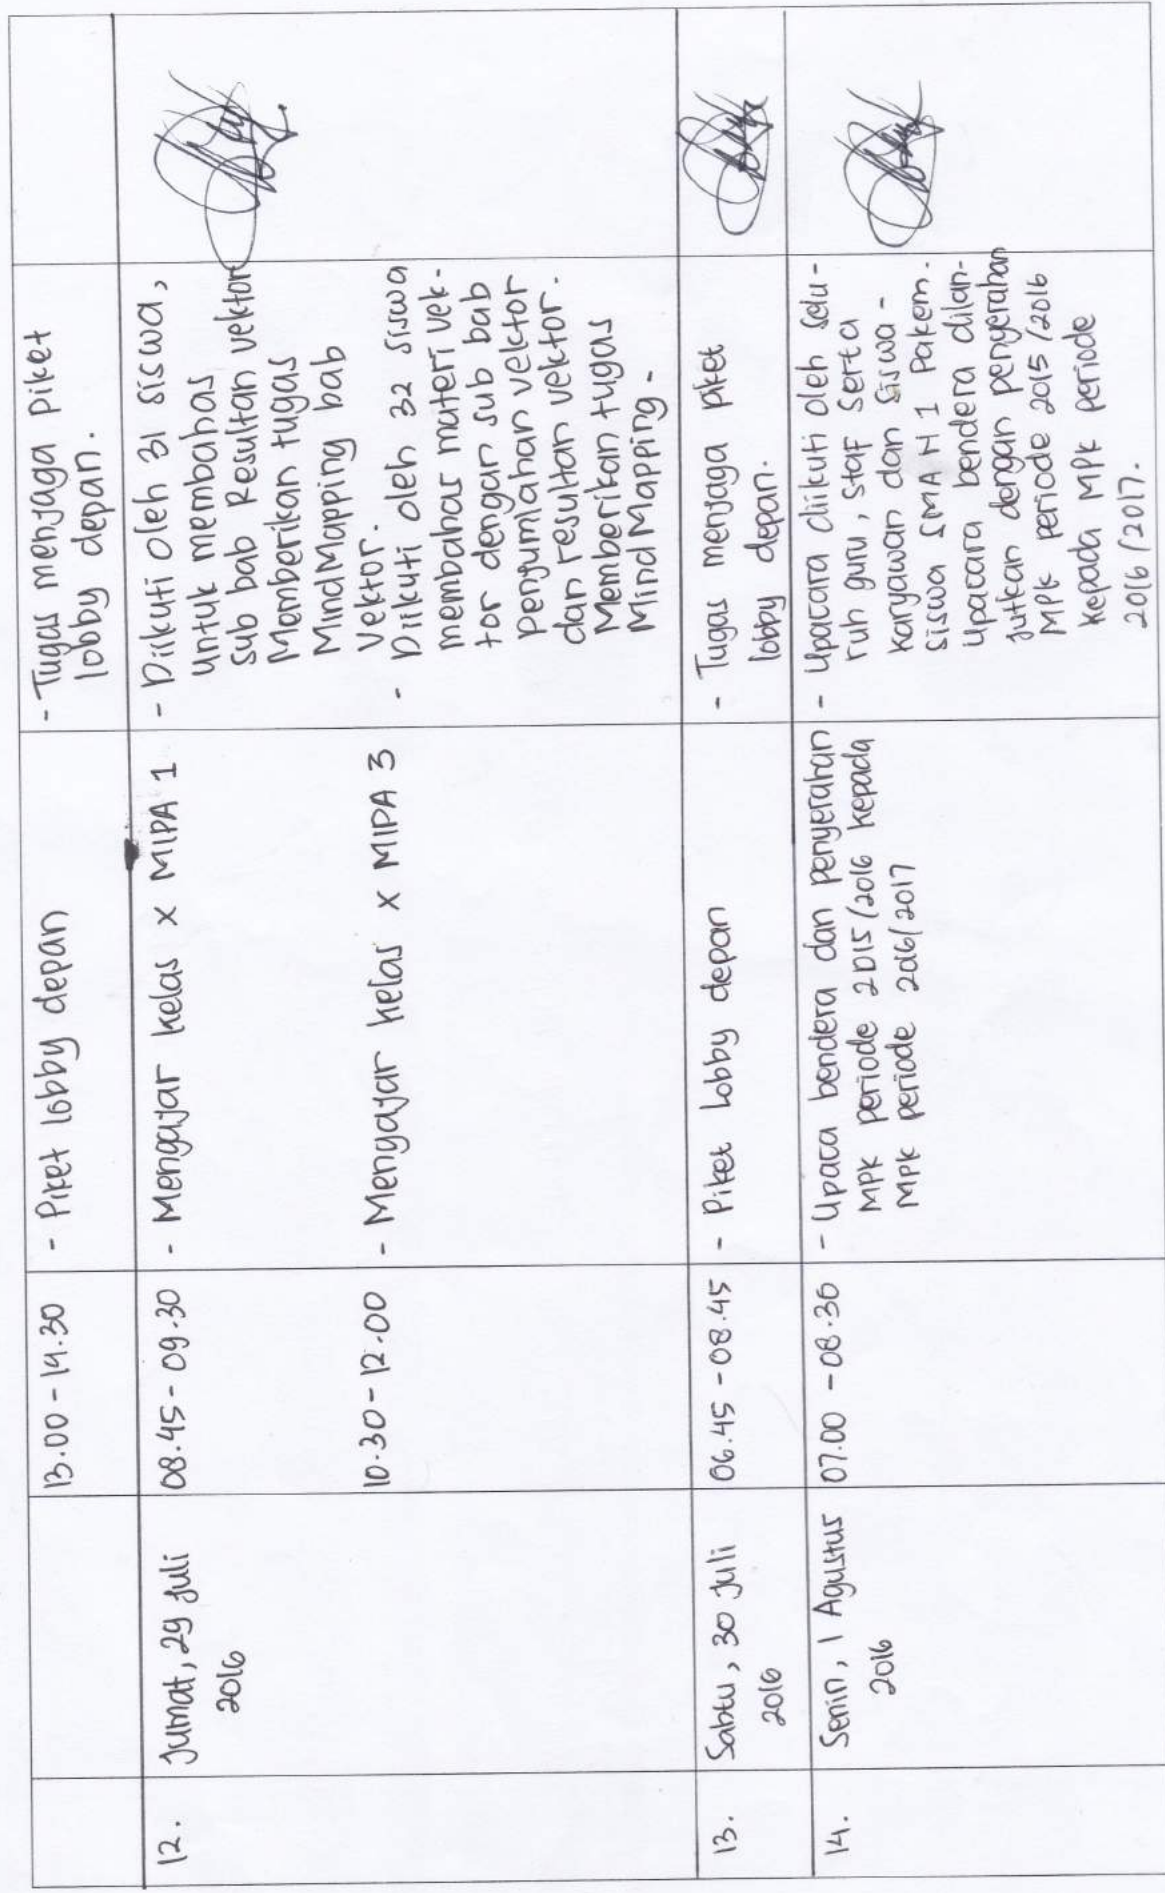 13.00 - 14.30
- Piket lobby depan
- Tugas menjaga piket
lobby depan.
12.
Jumat, 29 Juli
2016
08.45 - 09.30
- Mengajar kelas X MIPA 1
- Diikuti oleh 31 siswa,
untuk membahas
sub bab Resultan vektor
Memberikan tugas
MindMapping bab
Vektor.
10.30 - 12.00
- Mengajar kelas X MIPA 3
- Diikuti oleh 32 siswa
membahas materi vek-
tor dengan sub bab
penjumlahan vektor
dan resultan vektor.
Memberikan tugas
MindMapping -
13.
Sabtu, 30 Juli
2016
06.45 - 08.45
- Piket Lobby depan
- Tugas menjaga piket
lobby depan.
14.
Senin, 1 Agustus
2016
07.00 - 08.30
- Upacara bendera dan penyerahan
MPK periode 2015/2016 kepada
MPK periode 2016/2017
- Upacara diikuti oleh selu-
ruh guru, staf serta
karyawan dan siswa -
siswa SMA N 1 Pakem.
Upacara bendera dilan-
jutkan dengan penyerahan
MPK periode 2015/2016
kepada MPK periode
2016/2017.